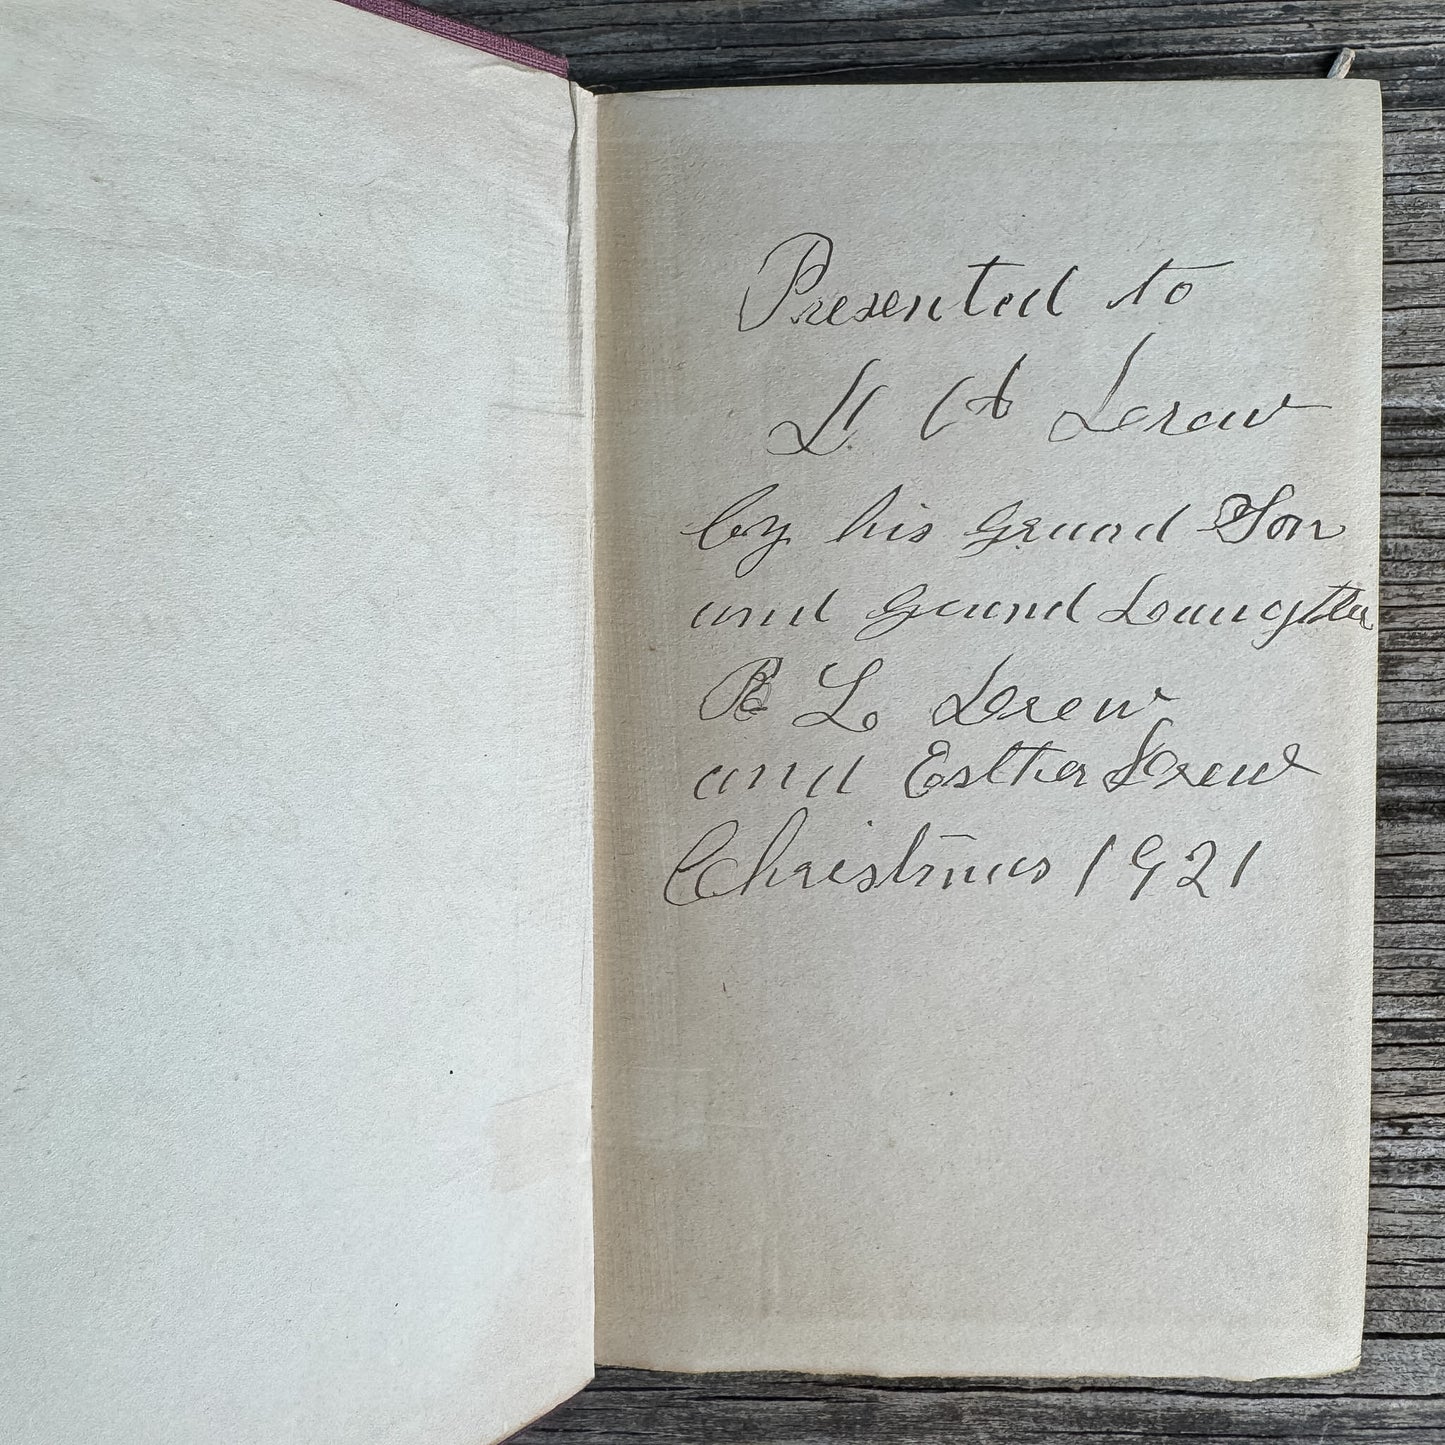 Presented to
L. A Drew
by his grand Son
and grand Daughter
R L Drew
and Esther Drew
Christmas 1921